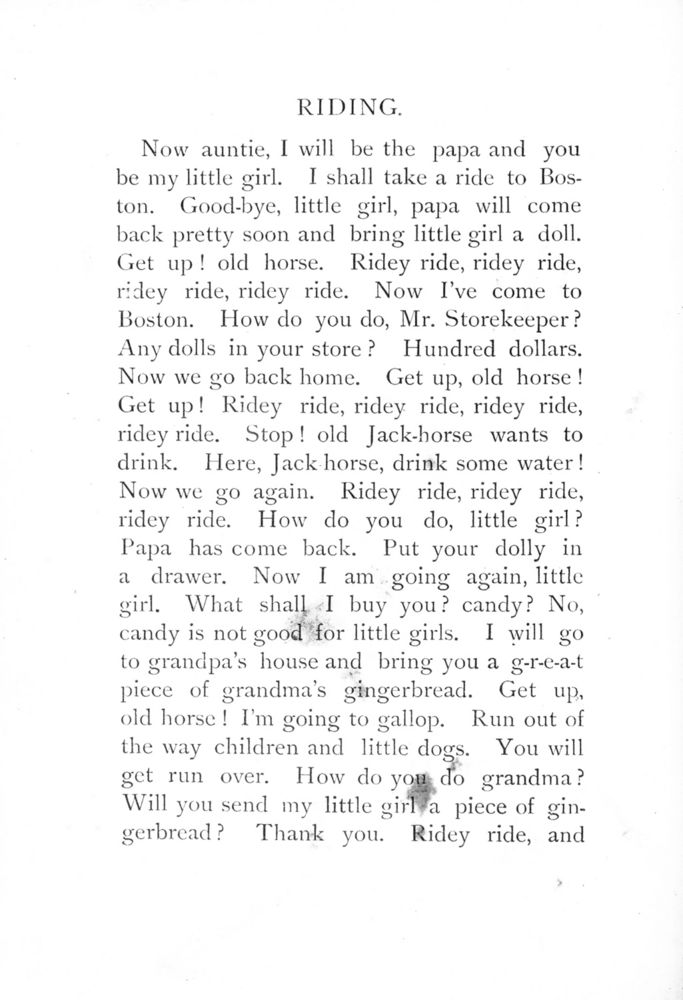 RIDING.
Now auntie, I will be the papa and you
be my little girl. I shall take a ride to Bos-
ton. Good-bye, little girl, papa will come
back pretty soon and bring little girl a doll.
Get up! old horse. Ridey ride, ridey ride,
ridey ride, ridey ride. Now I've come to
Boston. How do you do, Mr. Storekeeper?
Any dolls in your store? Hundred dollars.
Now we go back home. Get up, old horse!
Get up! Ridey ride, ridey ride, ridey ride,
ridey ride. Stop! old Jack-horse wants to
drink. Here, Jack-horse, drink some water!
Now we go again. Ridey ride, ridey ride,
ridey ride. How do you do, little girl?
Papa has come back. Put your dolly in
a drawer. Now I am going again, little
girl. What shall I buy you? candy? No,
candy is not good for little girls. I will go
to grandpa's house and bring you a g-r-e-a-t
piece of grandma's gingerbread. Get up,
old horse! I'm going to gallop. Run out of
the way children and little dogs. You will
get run over. How do you do grandma?
Will you send my little girl a piece of gin-
gerbread? Thank you. Ridey ride, and